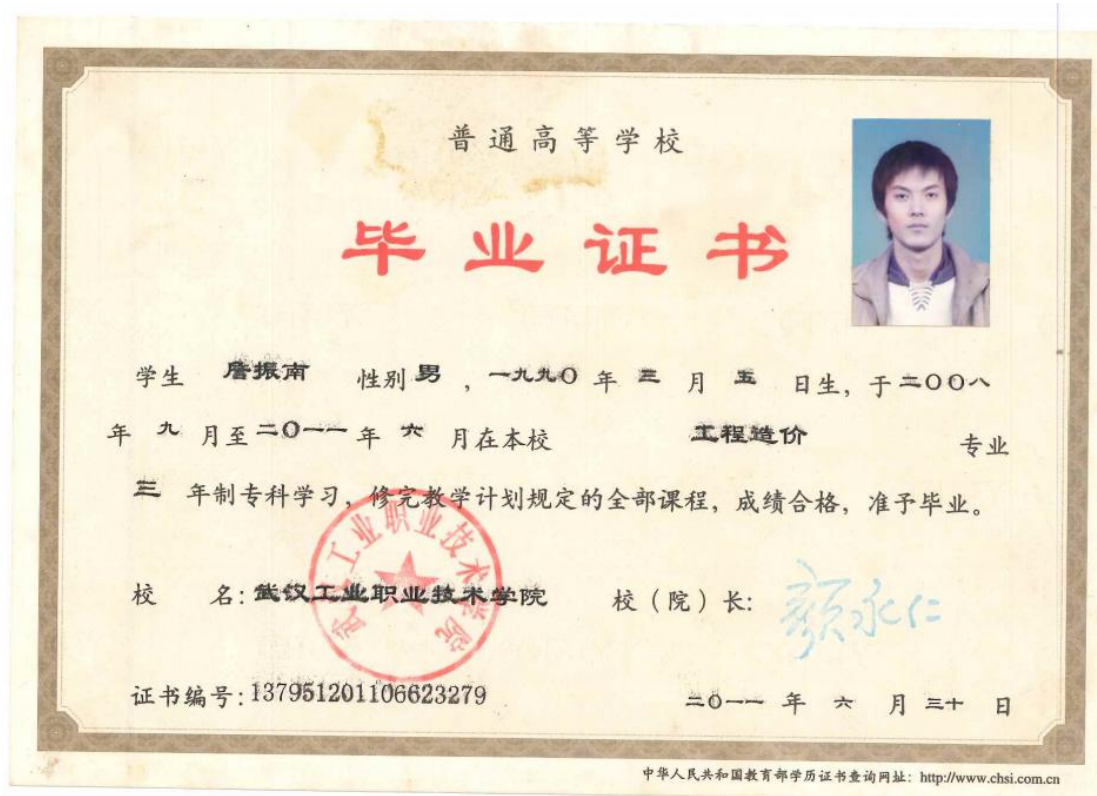 普通高等学校
毕业证书
学生 詹振南 性别 男 ，一九九〇 年 三 月 五 日生，于二〇〇八
年 九 月至二〇一一年 六 月在本校 工程造价 专业
三 年制专科学习，修完教学计划规定的全部课程，成绩合格，准予毕业。
武汉工业职业技术学院
校 名：武汉工业职业技术学院 校（院）长：颜永仁
证书编号：137951201106623279 二〇一一 年 六 月 三十 日
中华人民共和国教育部学历证书查询网址：http://www.chsi.com.cn